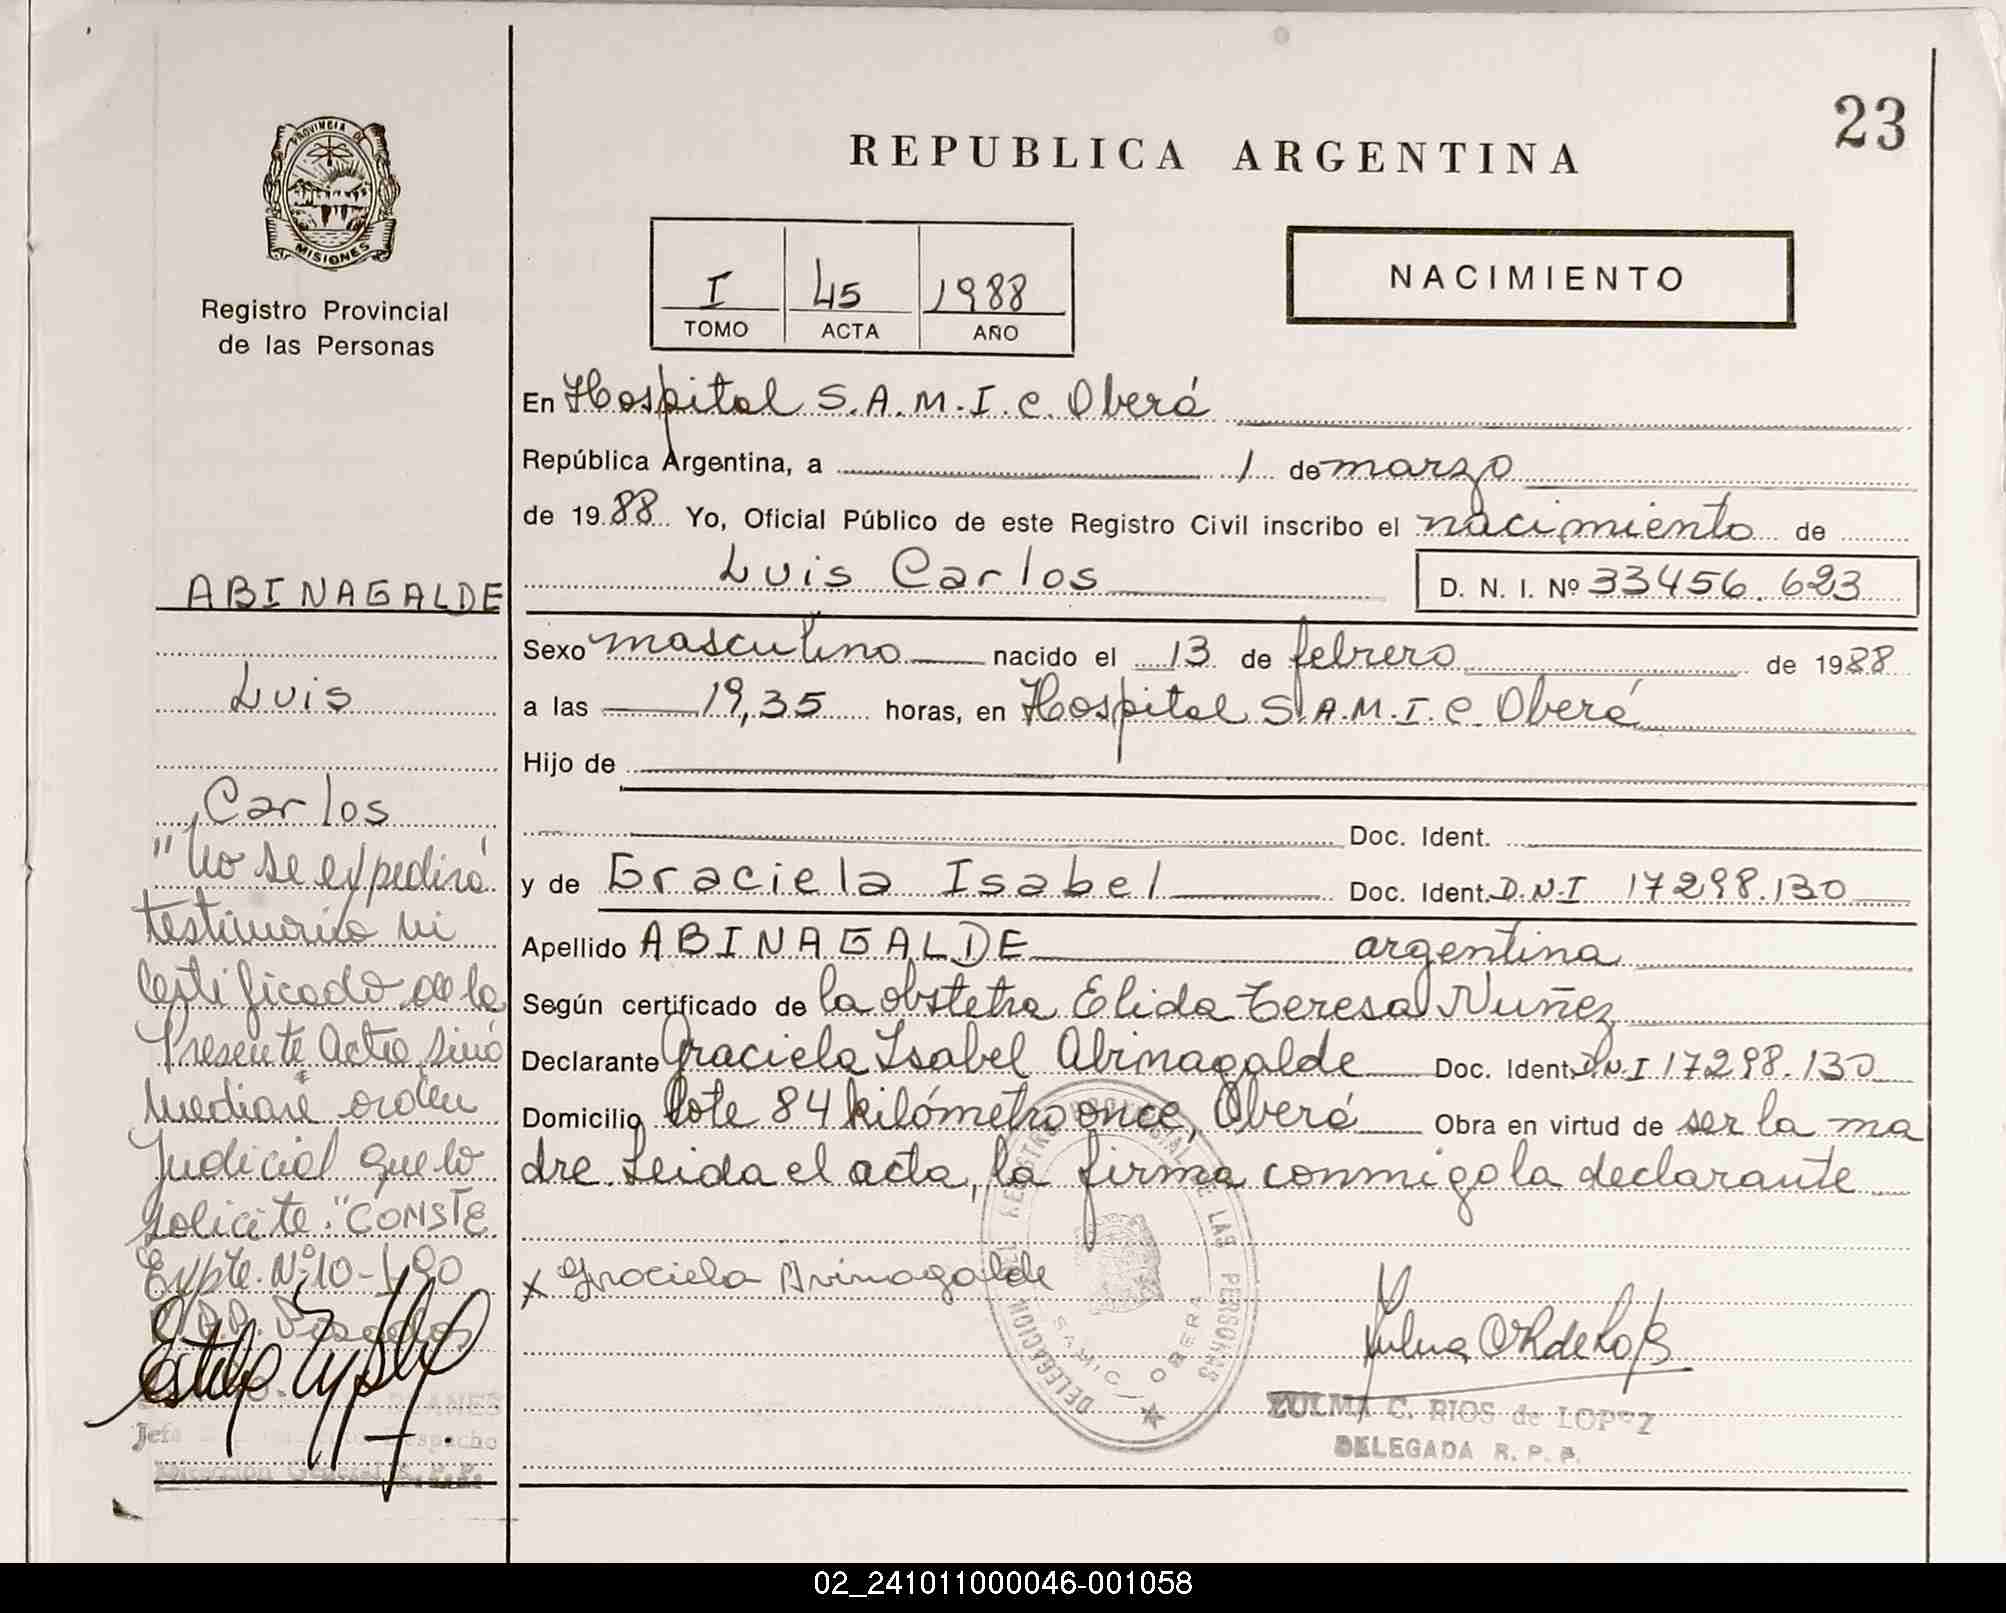 PROVINCIA DE
MISIONES
Registro Provincial
de las Personas
ABINAGALDE
Luis
Carlos
"No se expedirá
testimonio ni
certificado de la
Presente Acta sinó
mediante orden
Judicial que lo
solicite." CONSTE
Expte. Nº 10-I-90
Jefe Despacho
Dirección General R.P.P.
23
REPUBLICA ARGENTINA
I 45 1988
TOMO ACTA AÑO
NACIMIENTO
En Hospital S.A.M.I.C. Oberá
República Argentina, a 1 de marzo
de 1988 Yo, Oficial Público de este Registro Civil inscribo el nacimiento de
Luis Carlos D. N. I. Nº 33456.623
Sexo masculino nacido el 13 de febrero de 1988
a las 19,35 horas, en Hospital S.A.M.I.C. Oberá
Hijo de
Doc. Ident.
y de Graciela Isabel Doc. Ident. D.N.I 17298.130
Apellido ABINAGALDE argentina
Según certificado de la obstetra Elida Teresa Nuñez
Declarante Graciela Isabel Abinagalde Doc. Ident. D.N.I 17298.130
Domicilio lote 84 kilómetro once, Oberá Obra en virtud de ser la ma
dre. Leida el acta, la firma conmigo la declarante
x Graciela Avinagalde
DELEGACION DEL REGISTRO PROVINCIAL DE LAS PERSONAS
SAMIC - OBERA
ZULMA C. RIOS de LOPEZ
DELEGADA R. P. P.
02_241011000046-001058